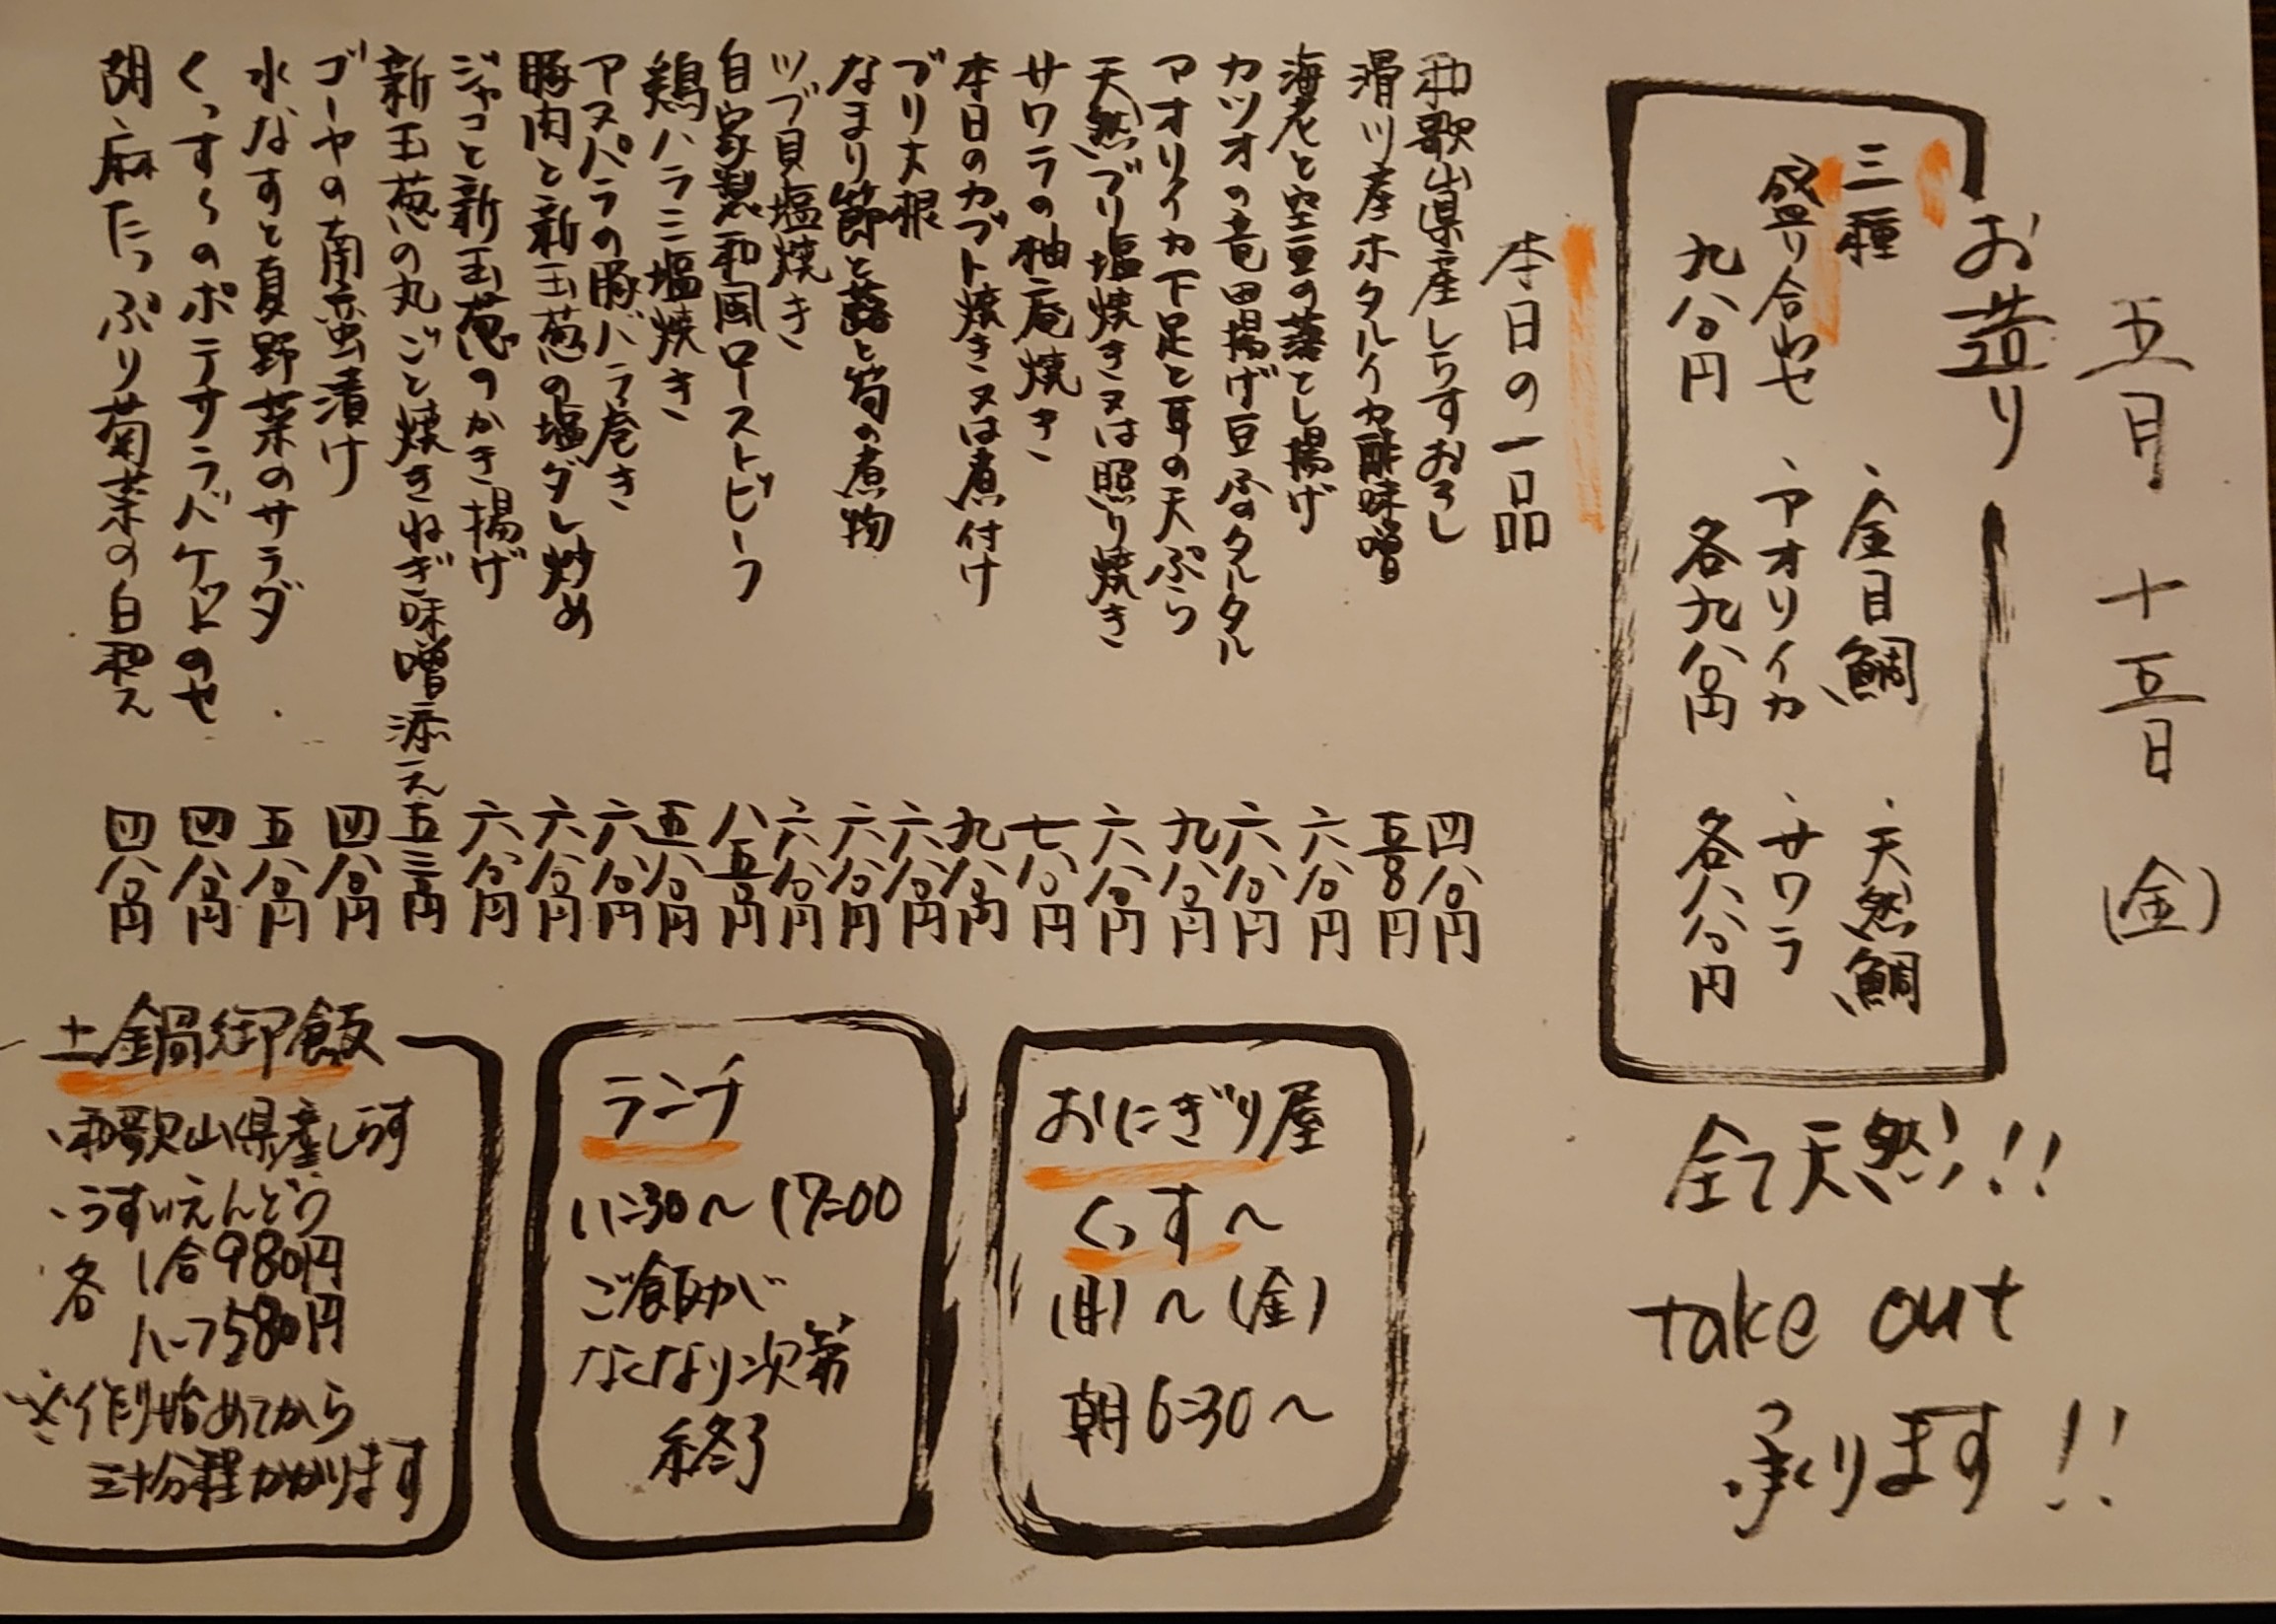 五月十五日(金)
お造り
三種
盛り合わせ
九八〇円
、金目鯛
、アオリイカ
各九八〇円
、天然鯛
、サワラ
各八八〇円
全て天然!!
take out
承ります!!
本日の一品
和歌山県産しらすおろし 四八〇円
滑川産ホタルイカ酢味噌 五八〇円
海老と空豆の落とし揚げ 六八〇円
カツオの竜田揚げ豆ふのタルタル 六八〇円
アオリイカ下足と耳の天ぷら 九八〇円
天然ブリ塩焼き又は照り焼き 六八〇円
サワラの柚庵焼き 七八〇円
本日のカブト焼き又は煮付け 九八〇円
ブリ大根 六八〇円
なまり節と蕗と筍の煮物 六八〇円
ツブ貝塩焼き 六八〇円
自家製和風ローストビーフ 八五〇円
鶏ハラミ塩焼き 五八〇円
アスパラの豚バラ巻き 六八〇円
豚肉と新玉葱の塩ダレ炒め 六八〇円
ジャコと新玉葱のかき揚げ 六八〇円
新玉葱の丸ごと焼きねぎ味噌添え 五三〇円
ゴーヤの南蛮漬け 四八〇円
水なすと夏野菜のサラダ 五八〇円
くっす〜のポテサラバケットのせ 四八〇円
胡麻たっぷり菊菜の白和え 四八〇円
おにぎり屋
くっす〜
(月)〜(金)
朝6:30〜
ランチ
11:30〜17:00
ご飯が
なくなり次第
終了
土鍋御飯
、和歌山県産しらす
、うすいえんどう
各 1合980円
ハーフ580円
※作り始めてから
三十分程かかります